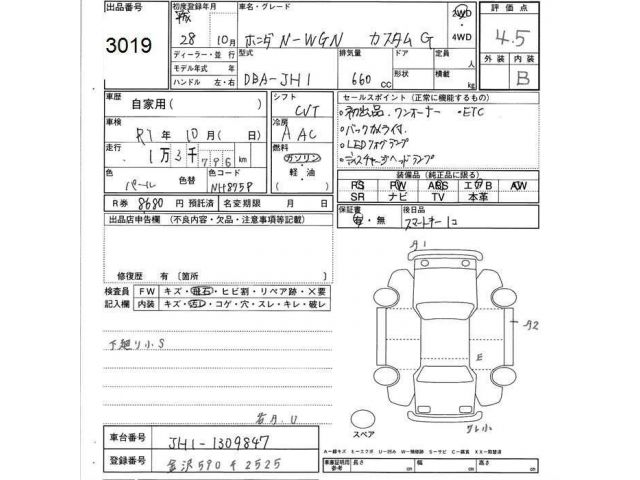 出品番号 初度登録年月 車名・グレード 2WD ・4WD 評価点
3019 平成 28年 10月 ホンダ N-WGN カスタム G 4.5
ディーラー・並行 型式 排気量 ドア 定員 人 外装 内装
モデル年式 年 形状 積載
ハンドル 左・右 DBA-JH1 660 cc kg B
車歴 シフト セールスポイント(正常に機能するもの)
自家用( ) CVT ・初出品 ・ワンオーナー ・ETC
車検 冷房 ・バックカメラ付
R1年 10月( 日) AAC ・LEDフォグランプ
走行 燃料 ・ディスチャージヘッドランプ
1万3千795km ガソリン・軽・油( ) 装備品(純正品に限る)
色 色替 色コード PS PW ABS エアB AW
パール NH875P SR ナビ TV 本革
R券 8680円 預託済 名変期限 月 日 保証書 後日品
出品店申告欄(不良内容・欠品・注意事項等記載) 有・無 スマートキー1コ
修復歴 有〔箇所 〕
検査員 FW キズ・飛石・ヒビ割・リペア跡・×要
記入欄 内装 キズ・汚レ・コゲ・穴・スレ・キレ・破レ
下廻り小S
A1
A2
E
スレ小
スペア
車台番号 JH1-1309847
登録番号 金沢590 2525
A-線キズ E-エクボ U-凹み W-補修跡 S-サビ C-腐食 XX-取替済
車庫証明用参考 長さ cm 幅 cm 高さ cm